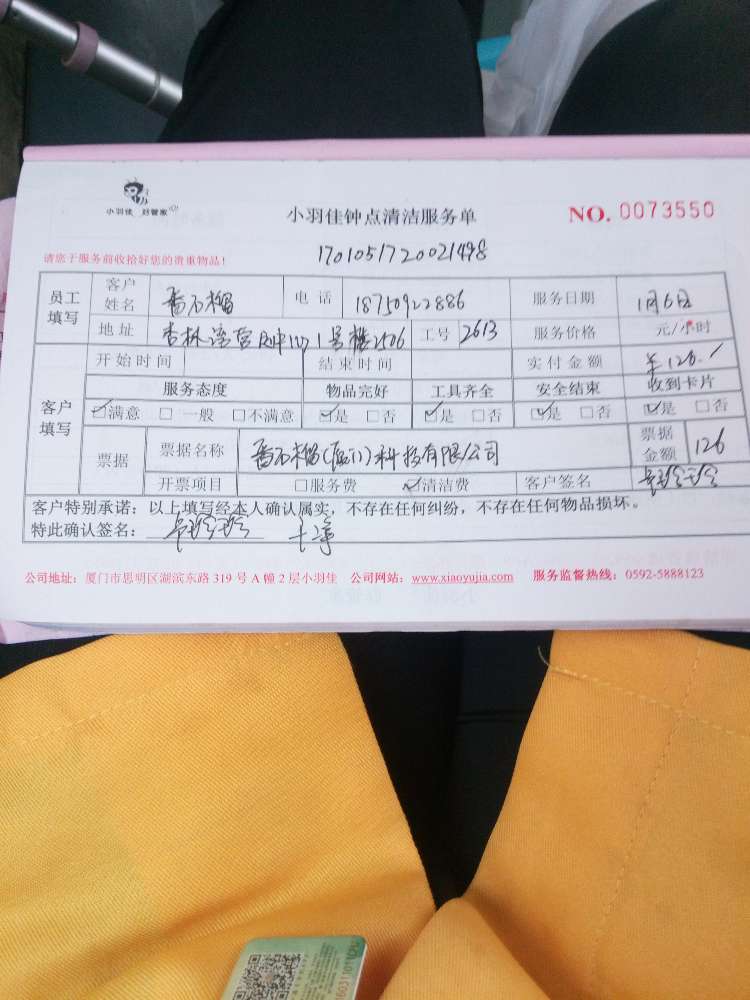 小羽佳 好管家
小羽佳钟点清洁服务单
NO. 0073550
1701051720021498
请您于服务前收拾好您的贵重物品!
员工填写 客户姓名 番石榴 电话 18750922886 服务日期 1月6日
地址 杏林 1号楼2506 工号 2613 服务价格 元/小时
客户填写 开始时间 结束时间 实付金额 ¥126./
服务态度 物品完好 工具齐全 安全结束 收到卡片
☑满意 □一般 □不满意 ☑是 □否 ☑是 □否 ☑是 □否 ☑是 □否
票据 票据名称 番石榴(厦门)科技有限公司 票据金额 126
开票项目 □服务费 ☑清洁费 客户签名
客户特别承诺:以上填写经本人确认属实,不存在任何纠纷,不存在任何物品损坏。
特此确认签名:
公司地址:厦门市思明区湖滨东路 319 号 A 幢 2 层小羽佳 公司网站:www.xiaoyujia.com 服务监督热线:0592-5888123